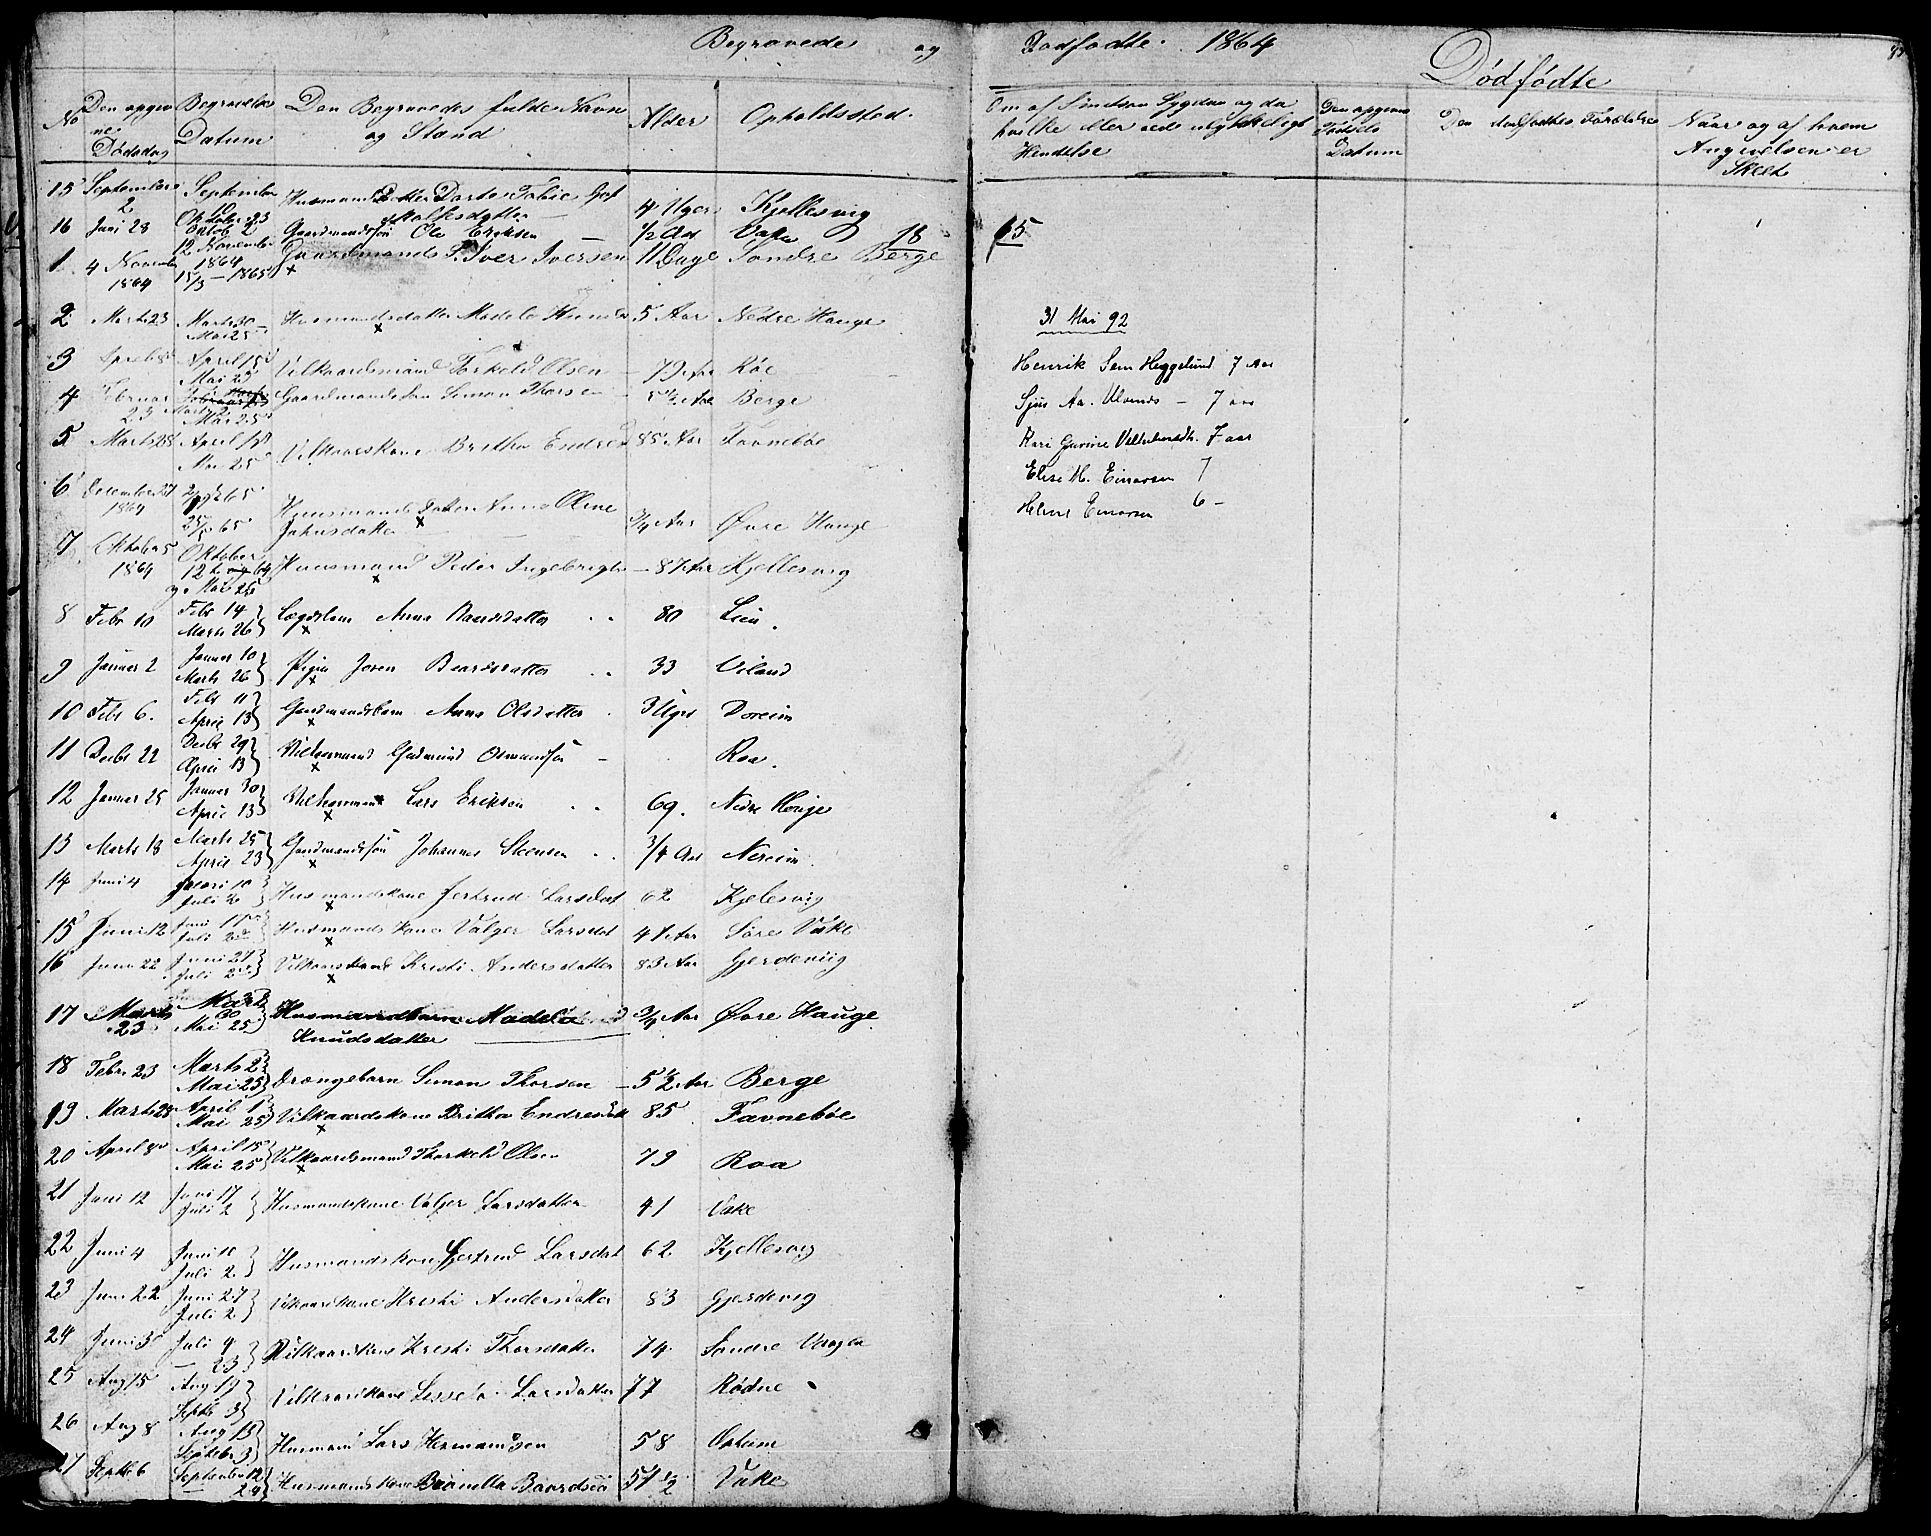 Begravede og Dødfødte. 1864
Dødfødte
No
Den opgivne Dødsdag
Begravelses Datum
Den Begravedes fulde Navn og Stand
Alder
Opholdssted.
Den opgivne Fødsels Datum
Den dødfødtes Forældre
Naar og af hvem Anmeldelsen er Skeet
15 September 2 September Husmands Datter Dorte 4 Uger Kjellesvig
16 Juni 28 Oktob 2 Gaardmandssøn Ole Eriksen 1/2 Aar Vake
1865
1 4 November 1864 12 November 1864 15/3 1865 Gaardmands S. Iver Iversen 11 Dage Søndre Berge
2 Marts 23 Marts 30 Mai 25 Husmandsdatter Madele 5 Aar Nedre Hauge
3 April 8 April 15 Mai 25 Vilkaarsmand Torkeld Olsen 79 Aar Røe
4 Februar 23 Marts 2 Mai 25 Gaardmandssøn Simon Thorsen 5 1/2 Aar Berge
5 Marts 28 April 1 Mai 25 Vilkaarskone Britha Endresd 85 Aar Favnebøe
6 December 27 1864 25/5 65 Huusmands Datter Anna Oline Johnsdatter 3/4 Aar Øvre Hauge
7 Oktober 5 1864 Oktober 12 64 og Mai 25 Huusmand Peder Ingebrigts 87 Aar Kjellesvig
8 Febr 10 Febr 14 Marts 26 Lægdslem Anna Baardsdatter 80 Lien
9 Januar 2 Januar 10 Marts 26 Pigen Joren Baardsdatter 33 Viland
10 Febr 6. Febr 11 April 13 Gaardmandsbarn Anna Olsdatter 3 Uger Doreim
11 Decbr 22 Decbr 29 April 13 Vilkaarsmand Gudmund Osmundsøn Roa.
12 Januar 25 Januar 30 April 13 Vilkaarsmand Lars Eriksen 69. Nedre Hauge
13 Marts 18 Marts 25 April 23 Gaardmandssøn Johannes Steensen 3/4 Aar Nereim
14 Juni 4 Juni 10 Juli 2 Husmandskone Jertrud Larsdat 62 Kjelesvig
15 Juni 12 Juni 17 Juli 2 Husmands kone Valger Larsdat 41 Aar Søre Vake
16 Juni 22 Juni 27 Juli 2 Vilkaarskone Kristi Andersdatter 83 Aar Gjerdeviig
17 Marts 23 Marts 30 Mai 25 Husmandbarn Madela Knudsdatter 3/4 Aar Øvre Hauge
18 Febr 23 Marts 2 Mai 25 Drængebarn Simon Thorsen 5 1/2 Aar Berge
19 Marts 28 April 1 Mai 25 Vilkaardskone Britha Endresdt 85 Favnebøe
20 April 8 April 15 Mai 25 Vilkaardsmand Thorkeld Olsen 79 Roa
21 Juni 12 Juni 17 Juli 2 Husmandskone Valger Larsdatter 41 Vake
22 Juni 4 Juni 10 Juli 2 Husmandskone Gjertrud Larsdat 62 Kjellesvig
23 Juni 22 Juni 27 Juli 2 Vilkaarskone Kristi Andersdatter 83 Gjerdevig
24 Juni 30 Juli 4 – 23 Vilkaarskone Kristi Thorsdatter 74 Søndre
25 Aug 15 Aug 19 Septb 3 Vilkaarskone Lisbeta Larsdatter 77 Rødne
26 Aug 8 Aug 13 Septbr 3 Husmand Lars Hermandsen 58 Opheim
27 Septb 6 September 12 – 24 Husmandskone Brønella Baardsdt 57 1/2 Vake
31 Mai 92
Henrik Sem Heggelund 7 Aar
Sjur Aa. Ulvenes – 7 aar
Kari Gurine Vilhelmsdt. 7 aar
Elise M. Einarsen 7
Helene Einarsen 6 –